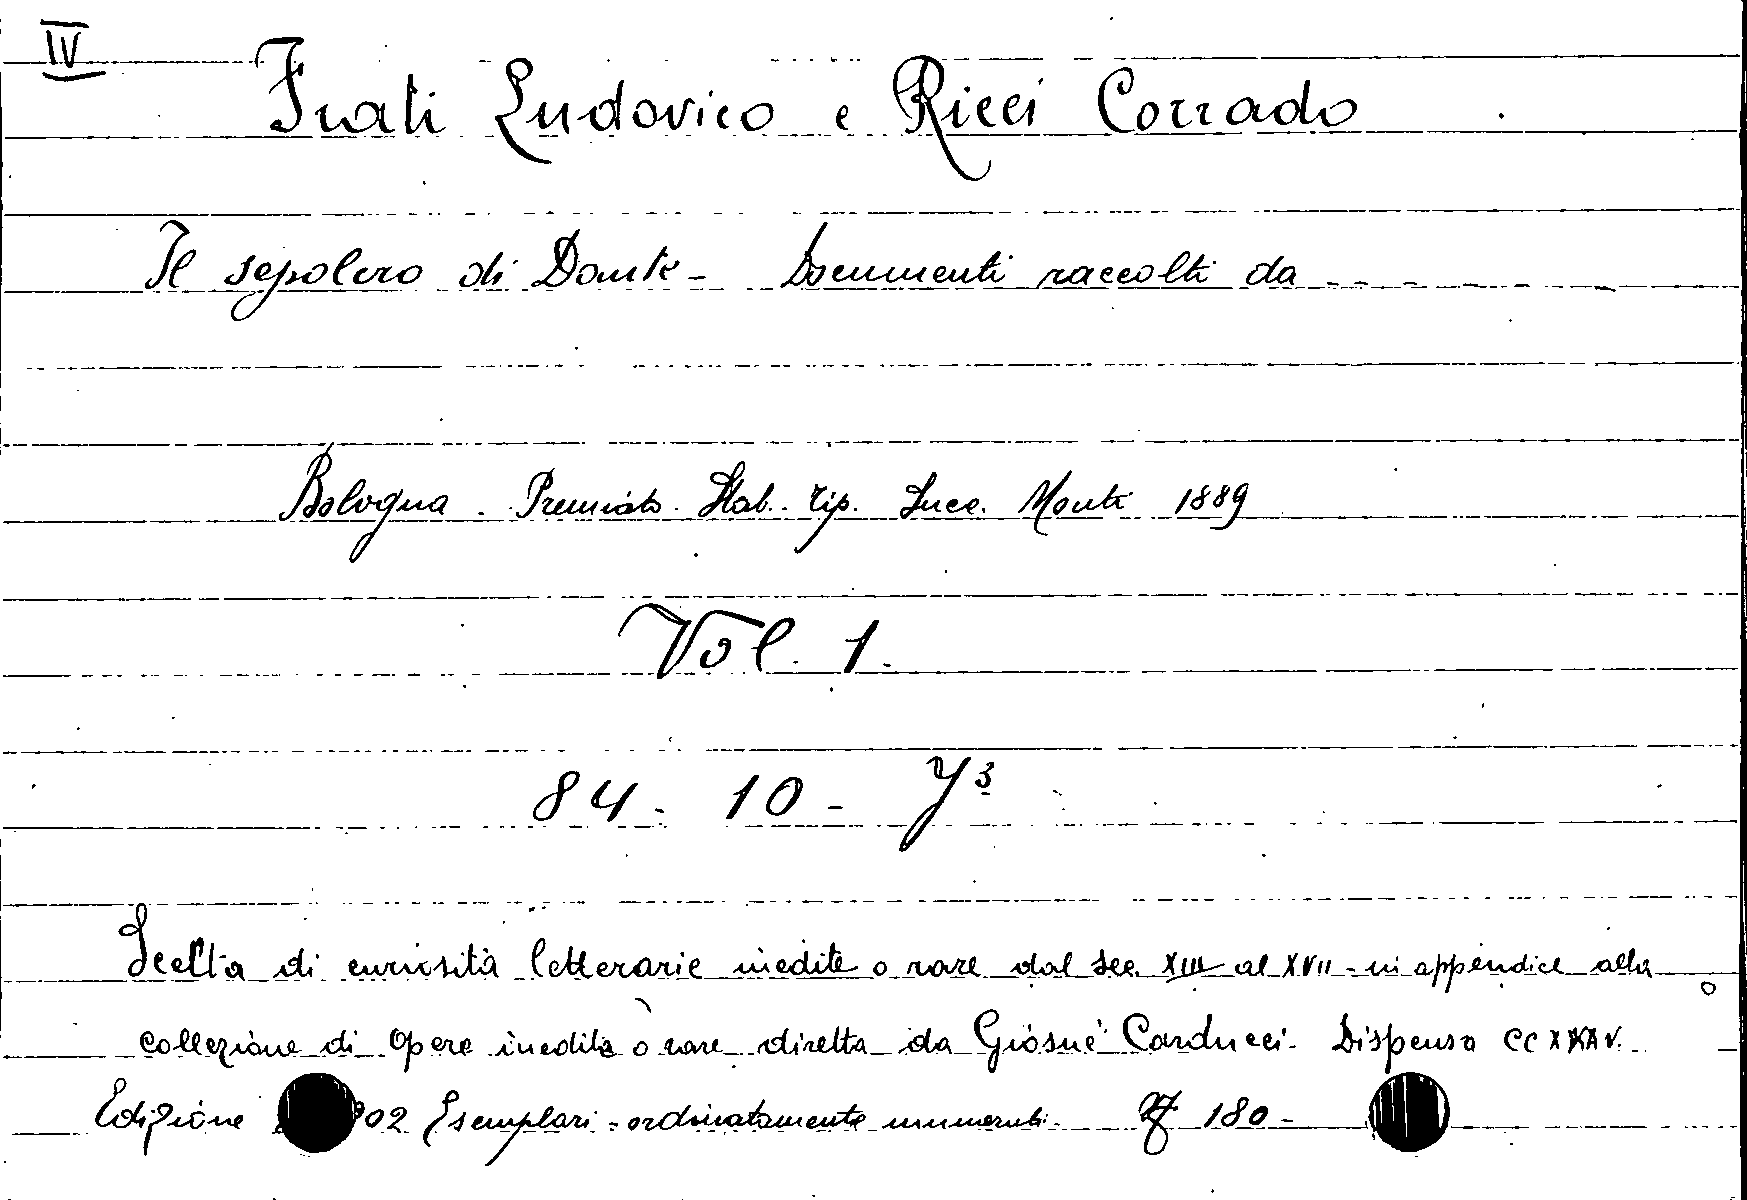 IV
Frati Ludovico e Ricci Corrado
Il sepolcro di Dante - Documenti raccolti da - - - - -
Bologna - Premiato Stab. tip. Succ. Monti 1889
Vol. 1.
84 - 10 - Y³
Scelta di curiosità letterarie inedite o rare dal sec. XIII al XVII - in appendice alla
collezione di Opere inedite o rare diretta da Giosuè Carducci - Dispensa CCXXXV.
Edizione 02 Esemplari - ordinatamente numerati. 180 -